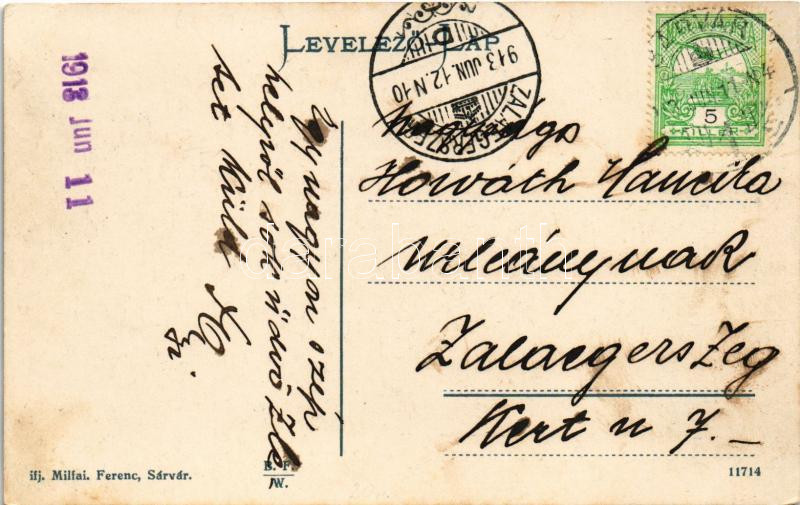 LEVELEZŐ LAP
1913 Jun 11
913 JUN. 12. N. 10
ZALAEGERSZEG
SÁRVÁR
5
FILLÉR
Egy nagyon szép
helyről sok üdvözle
tet küld
Nagyságos
Horváth Mancika
Urleánynak
Zalaegerszeg
Kert u 7. –
ifj. Milfai. Ferenc, Sárvár.
B. F.
W.
11714
darabanth